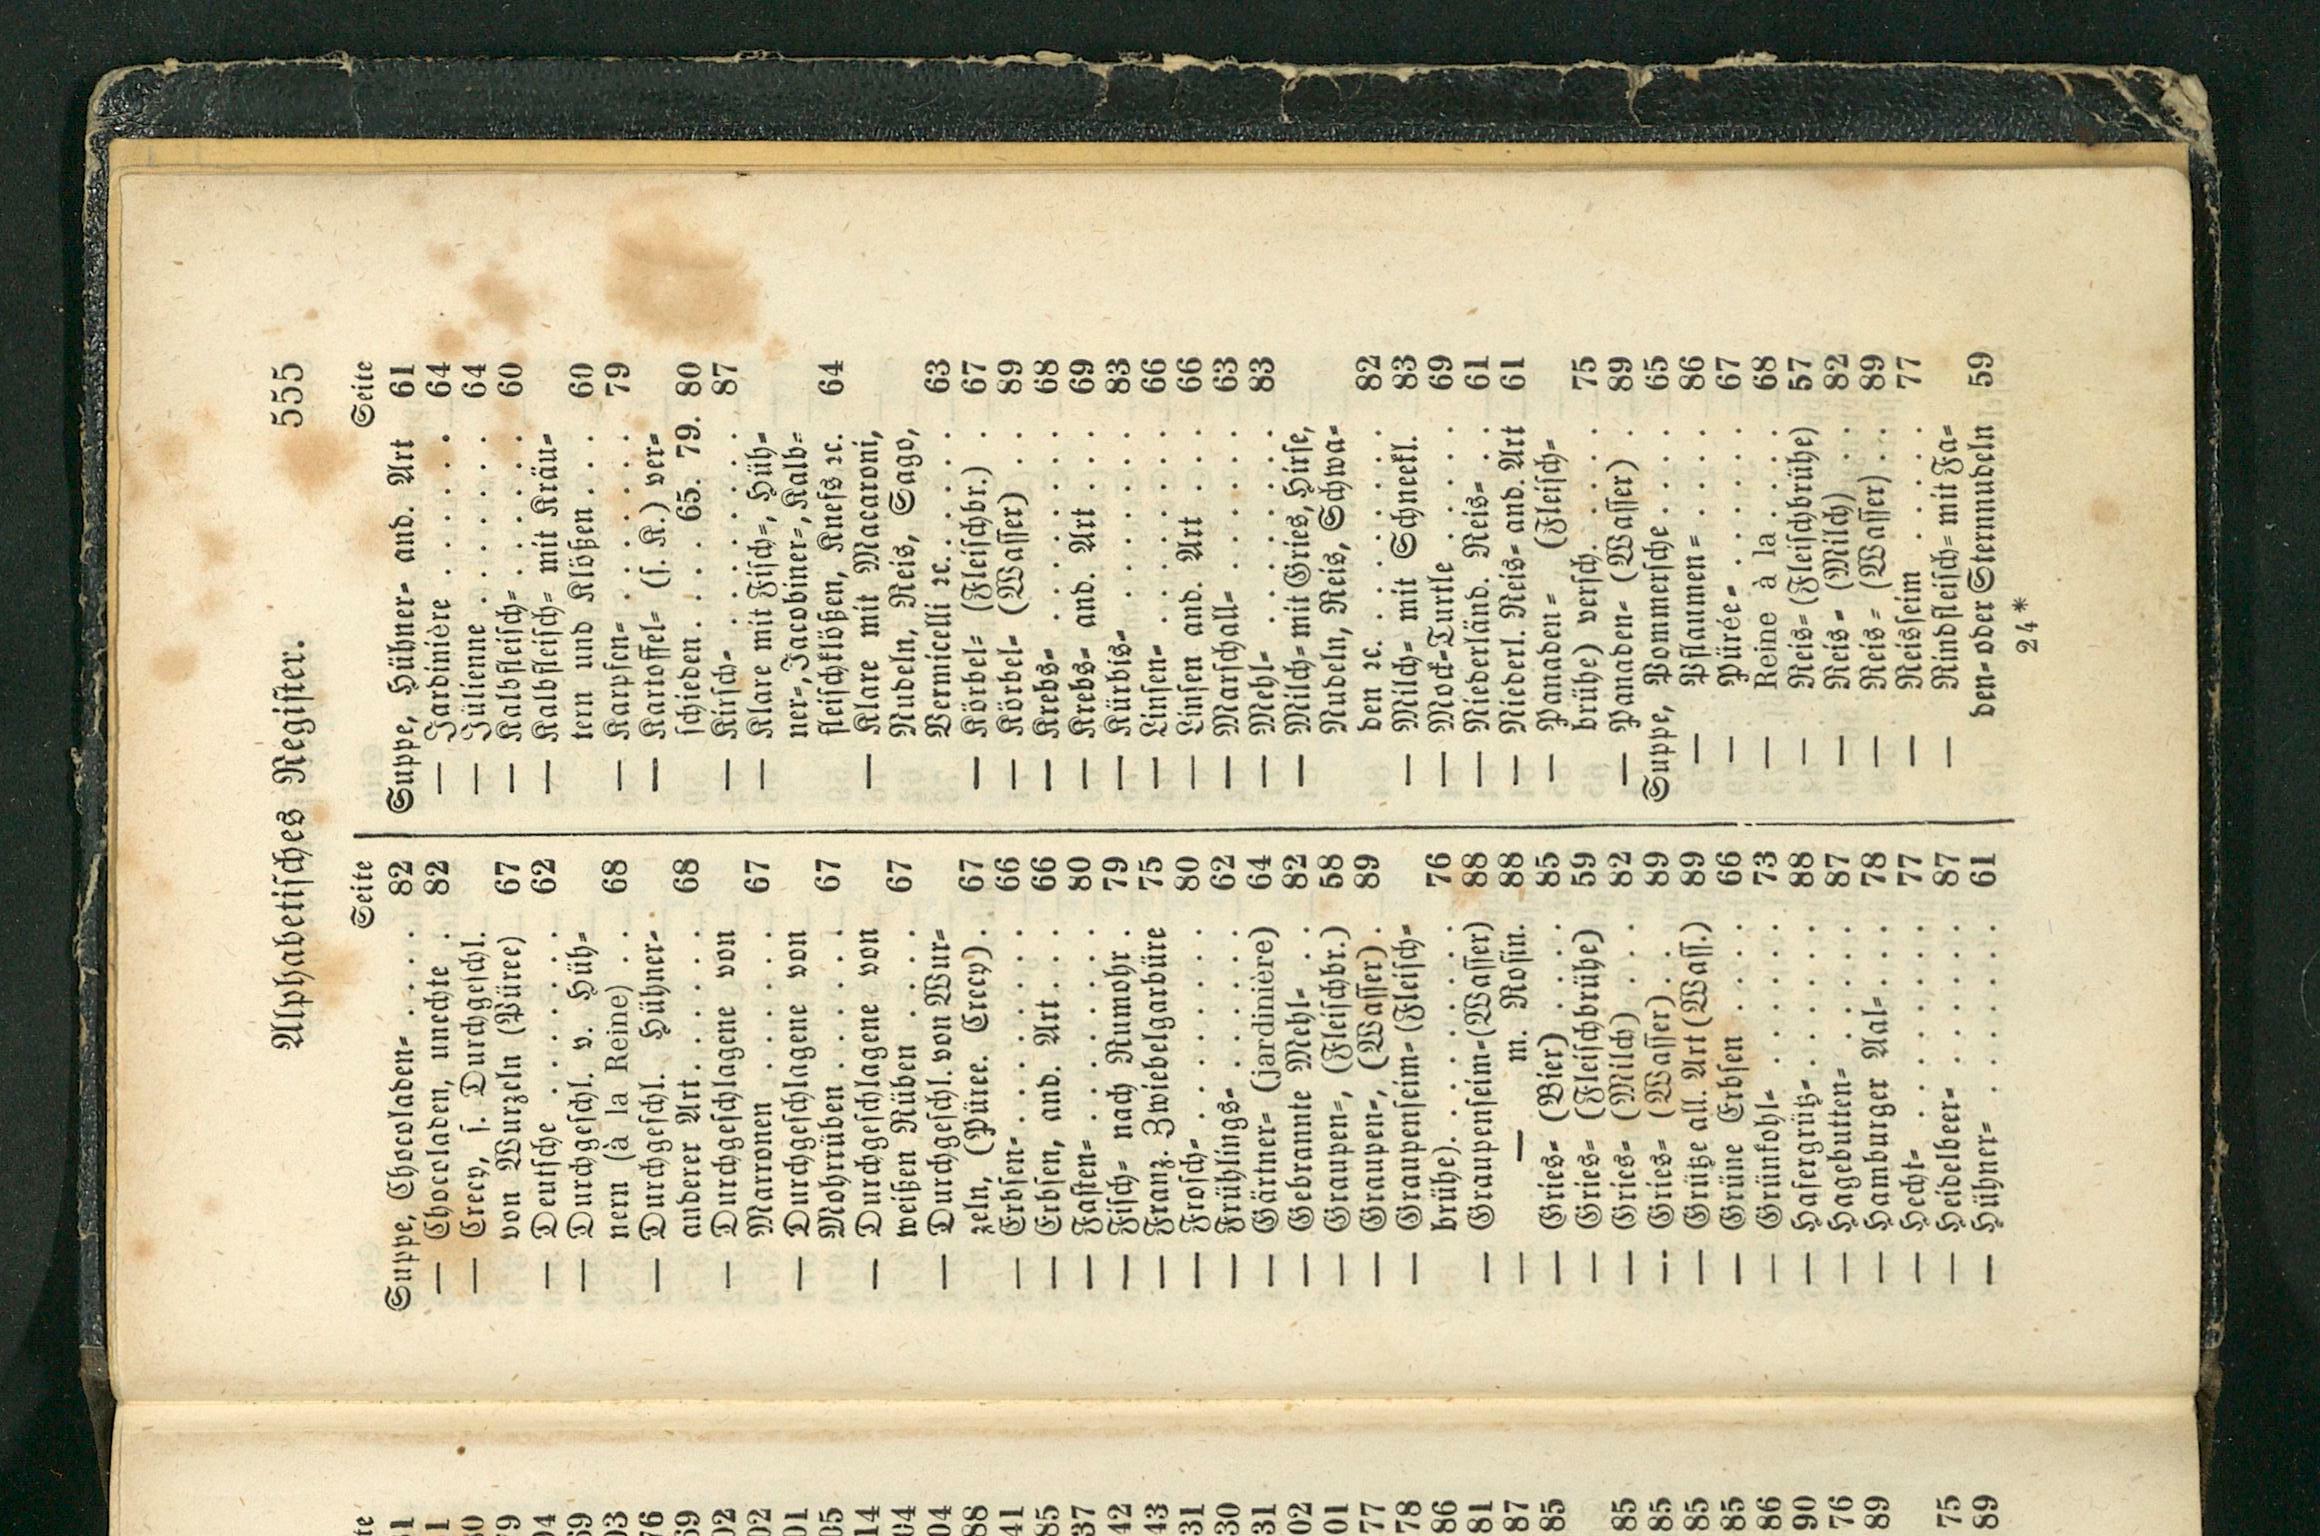 Alphabetisches Register. 555
Seite
Suppe, Chocoladen⸗ . . . . 82
— Chocoladen, unechte . 82
— Crecy, s. Durchgeschl.
von Wurzeln (Püree) 67
— Deutsche . . . . . . 62
— Durchgeschl. v. Hüh⸗
nern (à la Reine) . . 68
— Durchgeschl. Hühner⸗
anderer Art . . . . . 68
— Durchgeschlagene von
Marronen . . . . . 67
— Durchgeschlagene von
Mohrrüben . . . . . 67
— Durchgeschlagene von
weißen Rüben . . . 67
— Durchgeschl. von Wur⸗
zeln, (Püree. Crecy) . 67
— Erbsen⸗ . . . . . . 66
— Erbsen, and. Art . . . 66
— Fasten⸗ . . . . . . 80
— Fisch⸗ nach Rumohr . 79
— Franz. Zwiebelgarbüre 75
— Frosch⸗ . . . . . . 80
— Frühlings⸗ . . . . . 62
— Gärtner⸗ (jardinière) 64
— Gebrannte Mehl⸗ . . 82
— Graupen⸗, (Fleischbr.) 58
— Graupen⸗, (Wasser) . 89
— Graupenseim⸗ (Fleisch⸗
brühe) . . . . . . . 76
— Graupenseim⸗ (Wasser) 88
— — m. Rosin. 88
— Gries⸗ (Bier) . . . . 85
— Gries⸗ (Fleischbrühe) 59
— Gries⸗ (Milch) . . . 82
— Gries⸗ (Wasser) . . . 89
— Grütze all. Art (Wass.) 89
— Grüne Erbsen . . . . 66
— Grünkohl⸗ . . . . . 73
— Hafergrütz⸗ . . . . . 88
— Hagebutten⸗ . . . . 87
— Hamburger Aal⸗ . . . 78
— Hecht⸗ . . . . . . . 77
— Heidelbeer⸗ . . . . . 87
— Hühner⸗ . . . . . . 61
Seite
Suppe, Hühner⸗ and. Art 61
— Jardinière . . . . . 64
— Jülienne . . . . . . 64
— Kalbfleisch⸗ . . . . . 60
— Kalbfleisch⸗ mit Kräu⸗
tern und Klößen . . . 60
— Karpfen⸗ . . . . . . 79
— Kartoffel⸗ (s. K.) ver⸗
schieden . . . . 65. 79. 80
— Kirsch⸗ . . . . . . . 87
— Klare mit Fisch⸗, Hüh⸗
ner⸗, Jacobiner⸗, Kalb⸗
fleischklößen, Knefs ꝛc. 64
— Klare mit Macaroni,
Nudeln, Reis, Sago,
Vermicelli ꝛc. . . . . 63
— Körbel⸗ (Fleischbr.) . 67
— Körbel⸗ (Wasser) . . 89
— Krebs⸗ . . . . . . . 68
— Krebs⸗ and. Art . . . 69
— Kürbis⸗ . . . . . . 83
— Linsen⸗ . . . . . . . 66
— Linsen and. Art . . . 66
— Marschall⸗ . . . . . 63
— Mehl⸗ . . . . . . . 83
— Milch⸗ mit Gries, Hirse,
Nudeln, Reis, Schwa⸗
den ꝛc. . . . . . . . 82
— Milch⸗ mit Schneekl. 83
— Mock⸗Turtle . . . . 69
— Niederländ. Reis⸗ . . 61
— Niederl. Reis⸗ and. Art 61
— Panaden⸗ (Fleisch⸗
brühe) versch. . . . . 75
— Panaden⸗ (Wasser) . 89
Suppe, Pommersche . . . . 65
— Pflaumen⸗ . . . . . 86
— Pürée⸗ . . . . . . . 67
— Reine à la . . . . . 68
— Reis⸗ (Fleischbrühe) 57
— Reis⸗ (Milch) . . . . 82
— Reis⸗ (Wasser) . . . 89
— Reisseim . . . . . . 77
— Rindfleisch⸗ mit Fa⸗
den⸗ oder Sternnudeln 59
24*